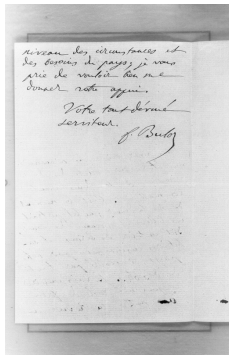 niveau des circonstances et
des besoins du pays, je vous
prie de vouloir bien me
donner votre appui.
Votre tout dévoué
serviteur.
F. Buloz